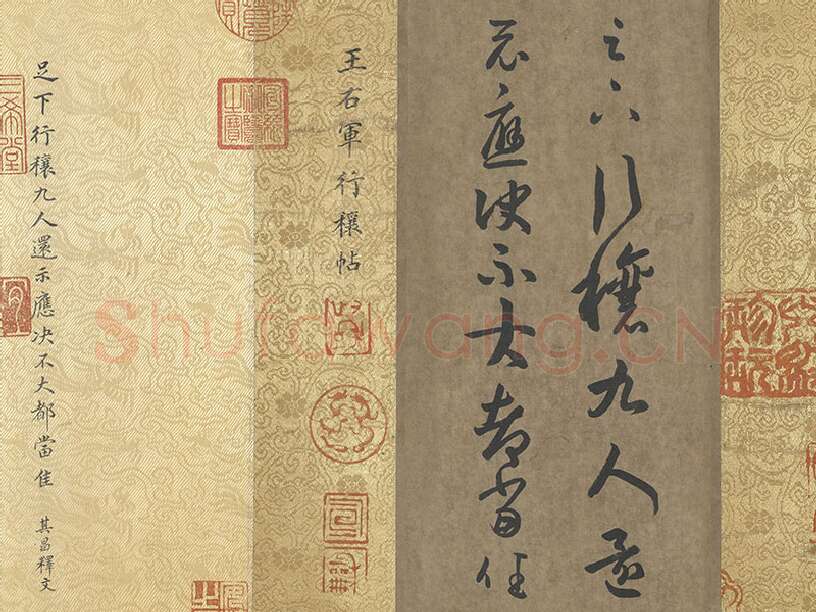 足下行穰九人還
示應決不大都當佳
王右軍行穰帖
足下行穰九人還示應決不大都當佳 其昌釋文
三希堂
Shufawang.CN